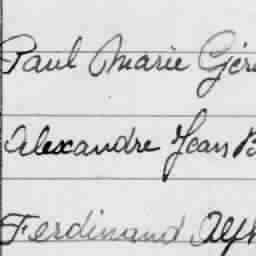 Paul Marie Gér
Alexandre Jean B
Ferdinand Alph